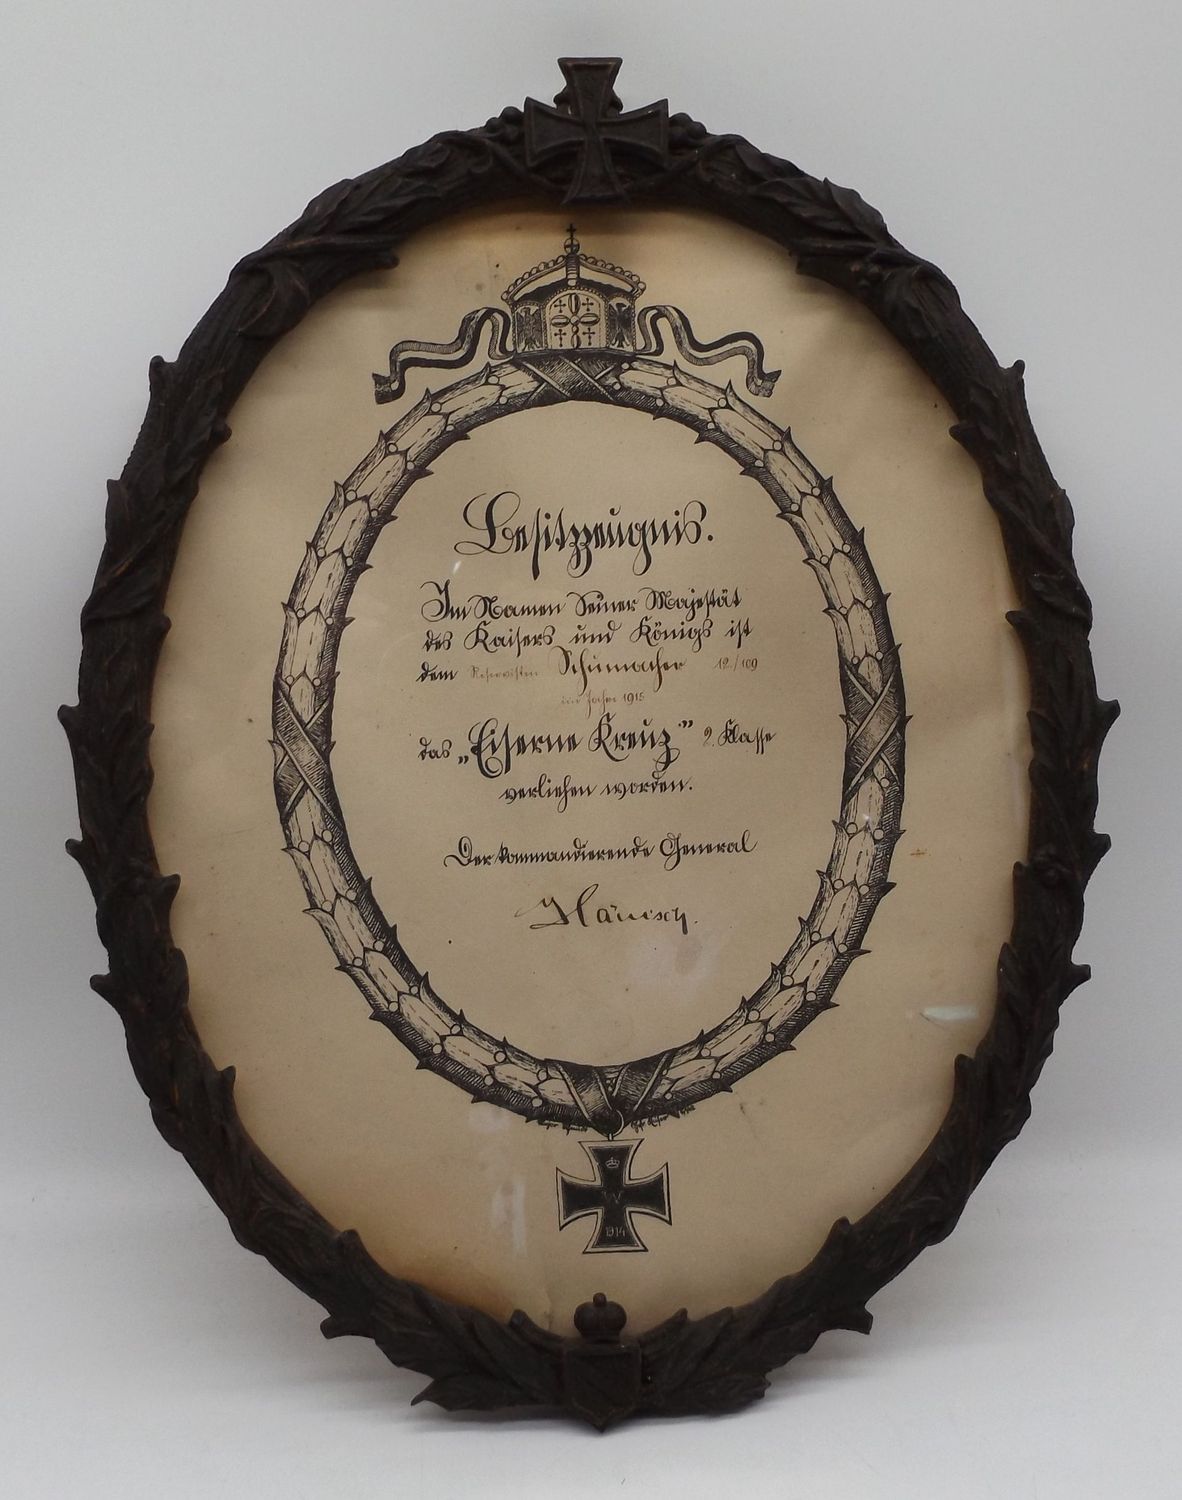 Besitzzeugnis.
Im Namen Seiner Majestät
des Kaisers und Königs ist
dem Reservisten Schumacher 12./109
im Jahre 1915
das „Eiserne Kreuz" 2. Klasse
verliehen worden.
Der kommandierende General
Hänisch.
W
1914